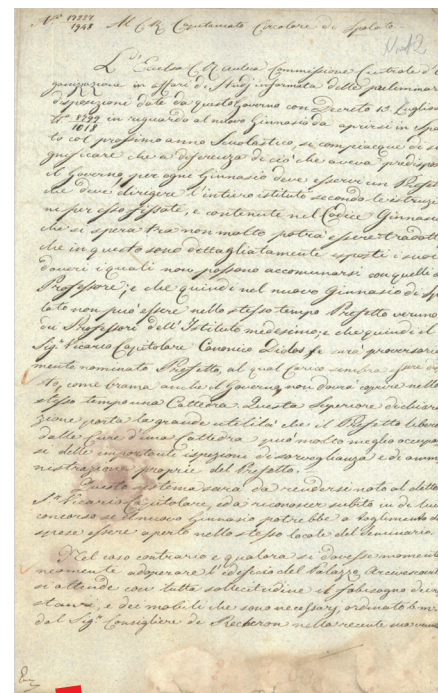 N.º 12227/1948 Al C. R. Capitanato Circolare di Spalato
N. 12
L'Eccelsa C. R. Aulica Commissione Centrale d'or
ganizzazione in affari di Studj informata delle preliminari
disposizioni date da questo Governo con Decreto 13 Luglio
N.º in riguardo al nuovo Ginnasio da aprirsi in Spala
to col prossimo anno Scolastico, si compiacque di si
gnificare che a differenza di ciò che aveva predispos
il Governo, per ogni Ginnasio deve essere un Prefet
che deve dirigere l'intiero istituto secondo le istruzi
ni per esso fissate, e contenute nel Codice Ginnasi
che si spera tra non molto potrà essere tradott
che in questo sono dettagliatamente esposti i suoi
doveri i quali non possono accomunarsi con quelli d
Professore; e che quindi nel nuovo Ginnasio di Spa
lato non può essere nello stesso tempo Prefetto veruno
dei Professori dell'Istituto medesimo; e che quindi il
Sig.r Vicario Capitolare Canonico Didos sarà provvisoria
mente nominato Prefetto, al qual Carico sembra
to, come brama anche il Governo, non dovrà coprire nello
stesso tempo una Cattedra. Questa Superiore dichiara
zione porta la grande utilità che il Prefetto libero
dalle Cure d'una Cattedra può molto meglio occupar
si delle importanti ispezioni di sorveglianza e di ammi
nistrazione proprie del Prefetto.
Questo sistema sarà da rendersi noto al detto
S.r Vicario Capitolare, e da riconoscer subito in di lui
concorso se il nuovo Ginnasio potrebbe a toglimento di
spese essere aperto nello stesso locale del Seminario
Nel caso contrario e qualora si dovesse momenta
neamente adoperare l'edificio del Palazzo Arcivescovi
si attende con tutta sollecitudine il fabisogno di
stauri, e dei mobili che sono necessarj, ordinato
dal Sig.r Consigliere de Recheron nella recente sua